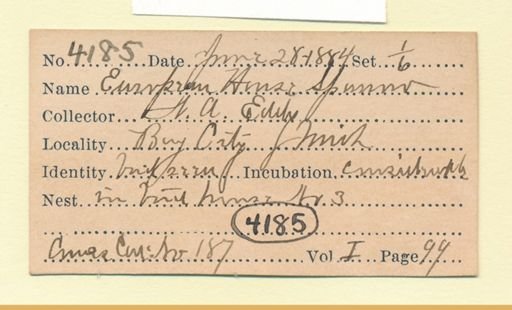 No. 4185 Date June 28-1884 Set 1/6
Name European House Sparrow
Collector A. Eddy
Locality Bay City Mich
Identity bird seen Incubation considerable
Nest in bird house No. 3
4185
Coll. No 187 Vol I Page 99